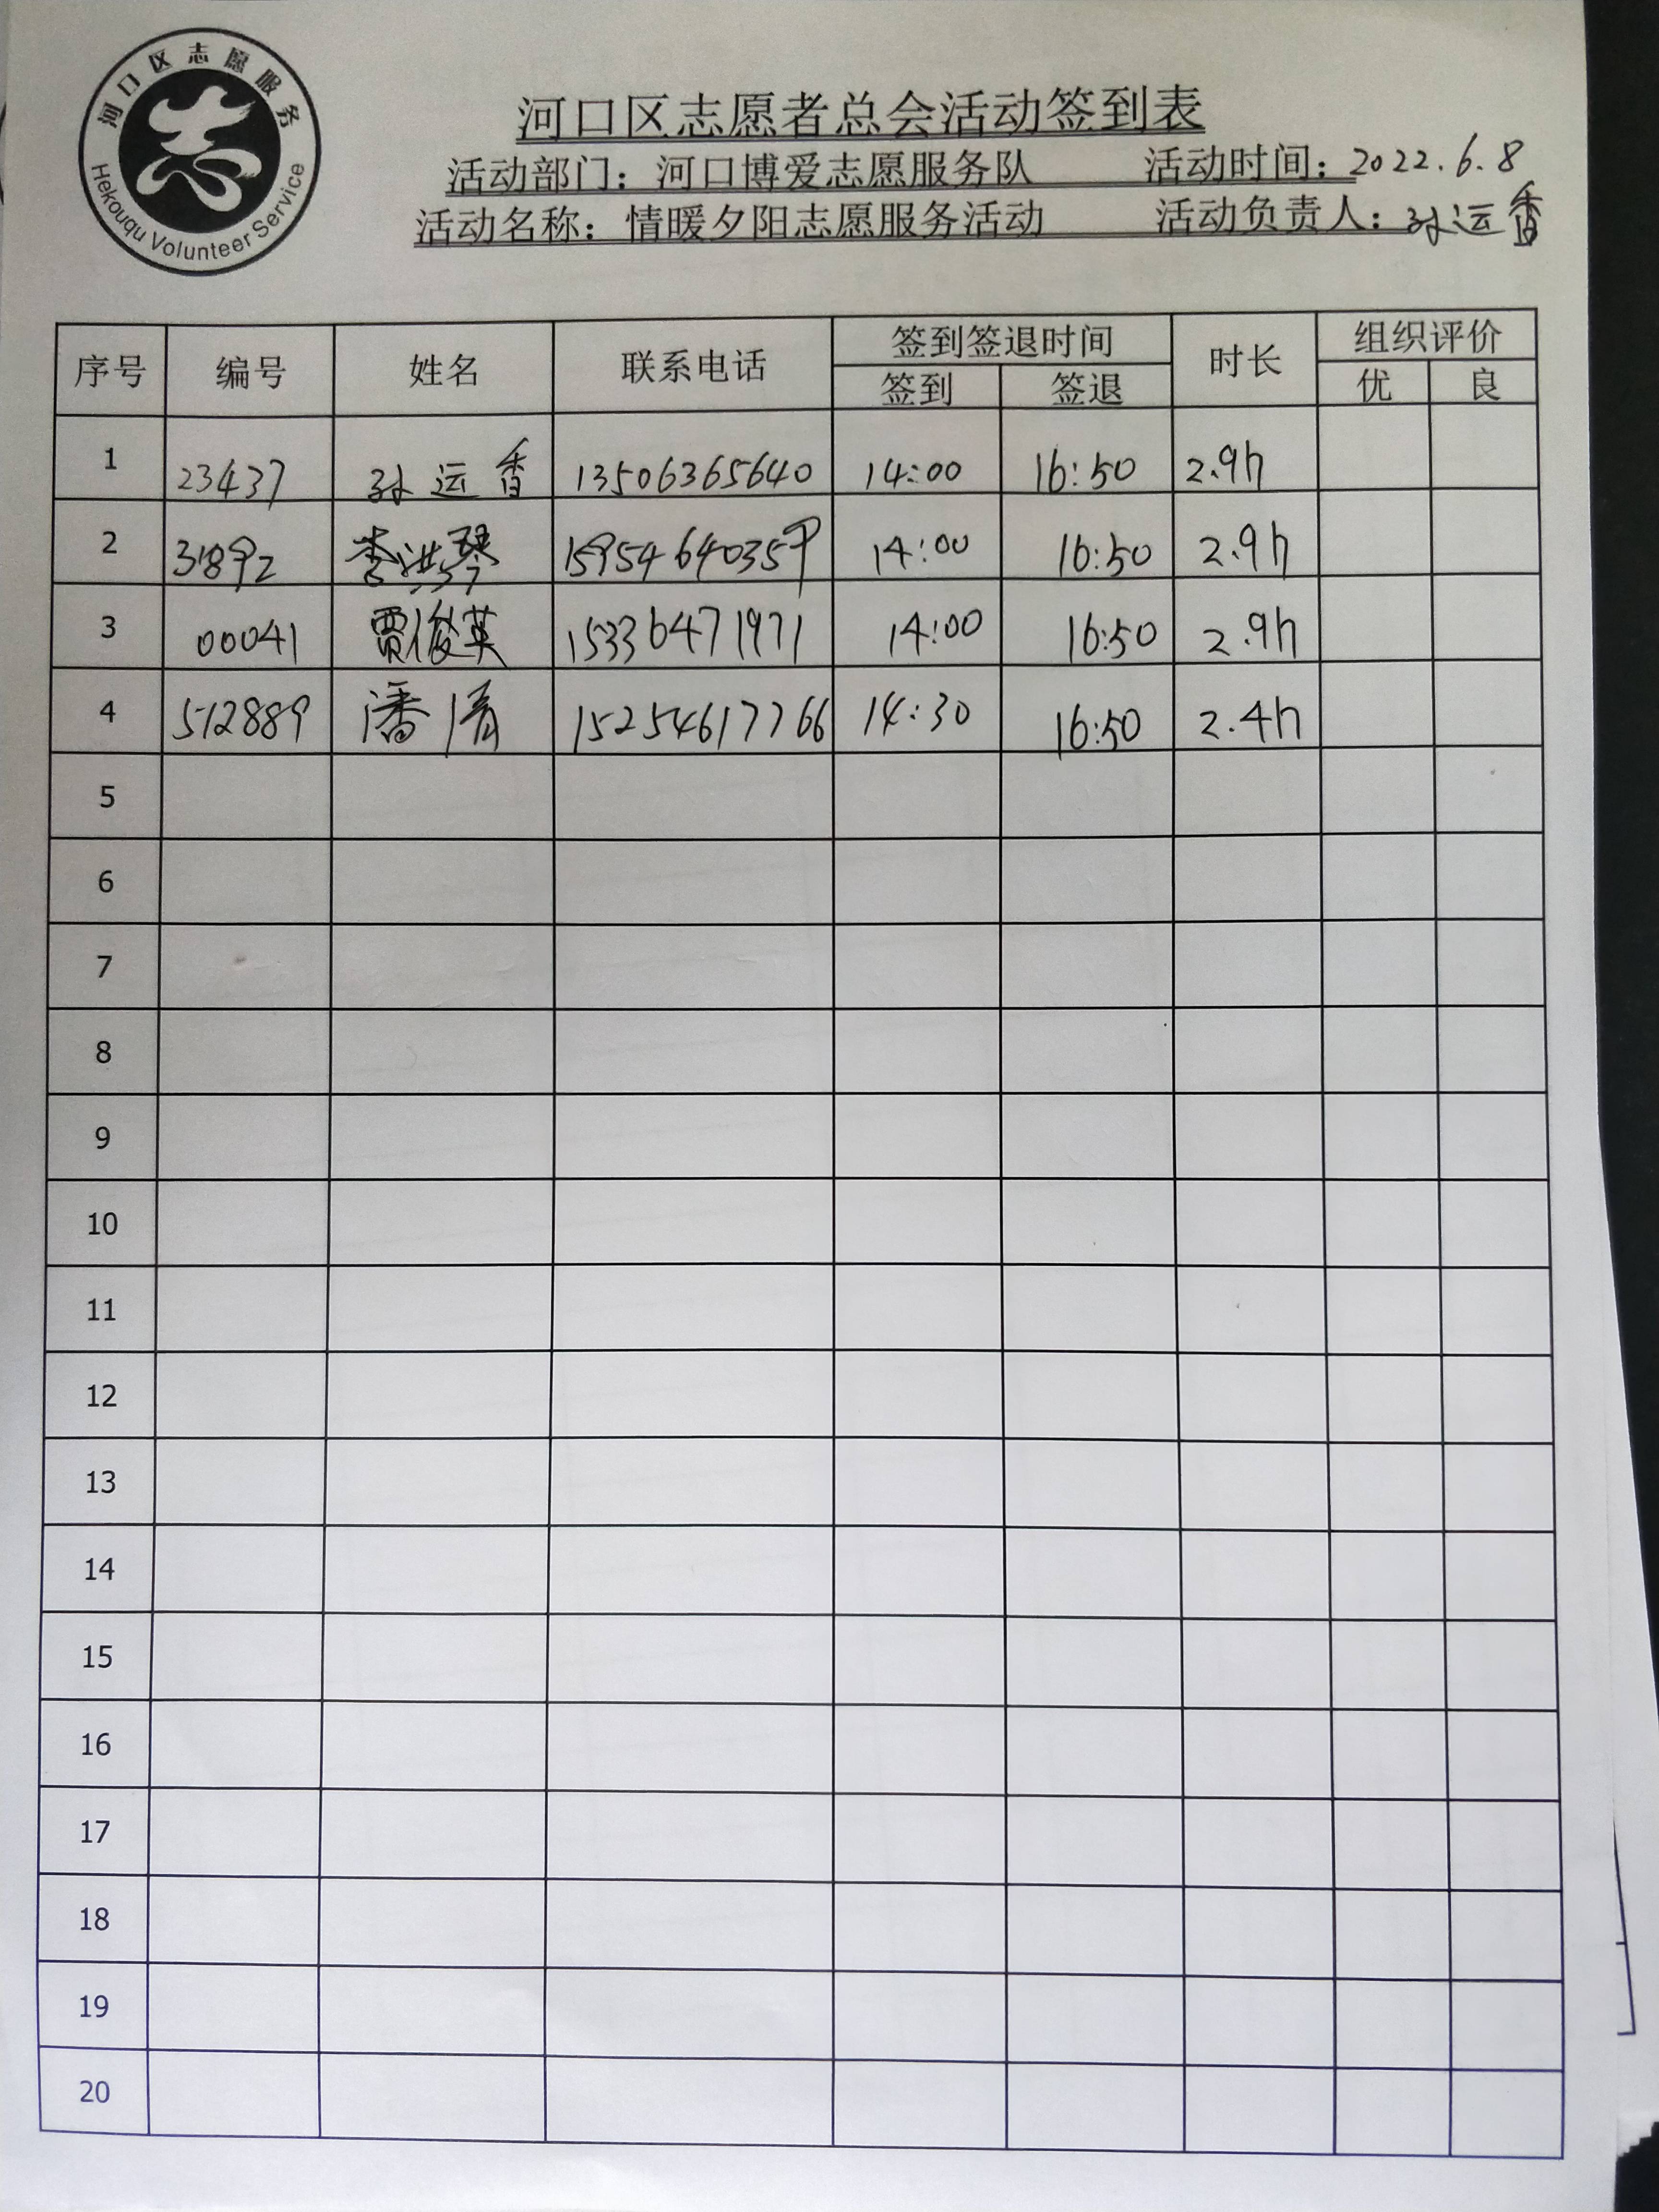 河口区志愿服务
Hekouqu Volunteer Service
河口区志愿者总会活动签到表
活动部门：河口博爱志愿服务队 活动时间：2022.6.8
活动名称：情暖夕阳志愿服务活动 活动负责人：孙运香
序号 编号 姓名 联系电话 签到签退时间 时长 组织评价
签到 签退 优 良
1 23437 孙运香 13506365640 14:00 16:50 2.9h
2 31892 李洪琴 15954640359 14:00 16:50 2.9h
3 00041 贾俊英 15336471971 14:00 16:50 2.9h
4 512889 潘倩 15254617766 14:30 16:50 2.4h
5
6
7
8
9
10
11
12
13
14
15
16
17
18
19
20